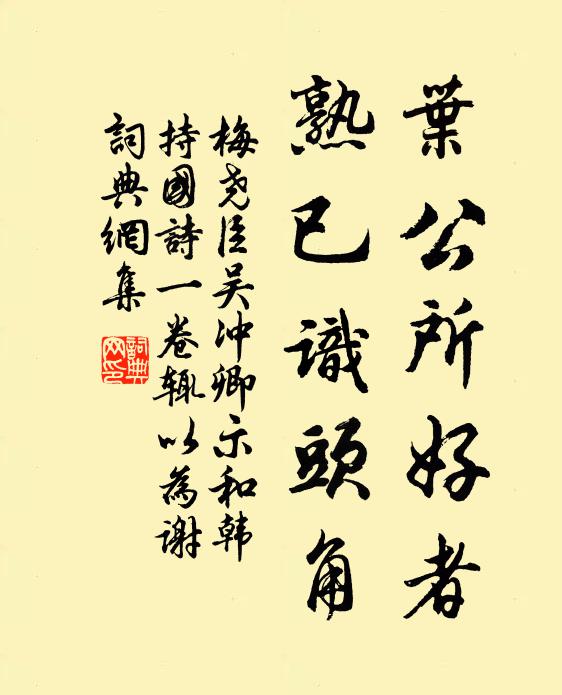 葉公所好者
熟已識頭角
梅尧臣吴冲卿示和韩
持國詩一卷辄以為谢
詞典網集
詞典網印